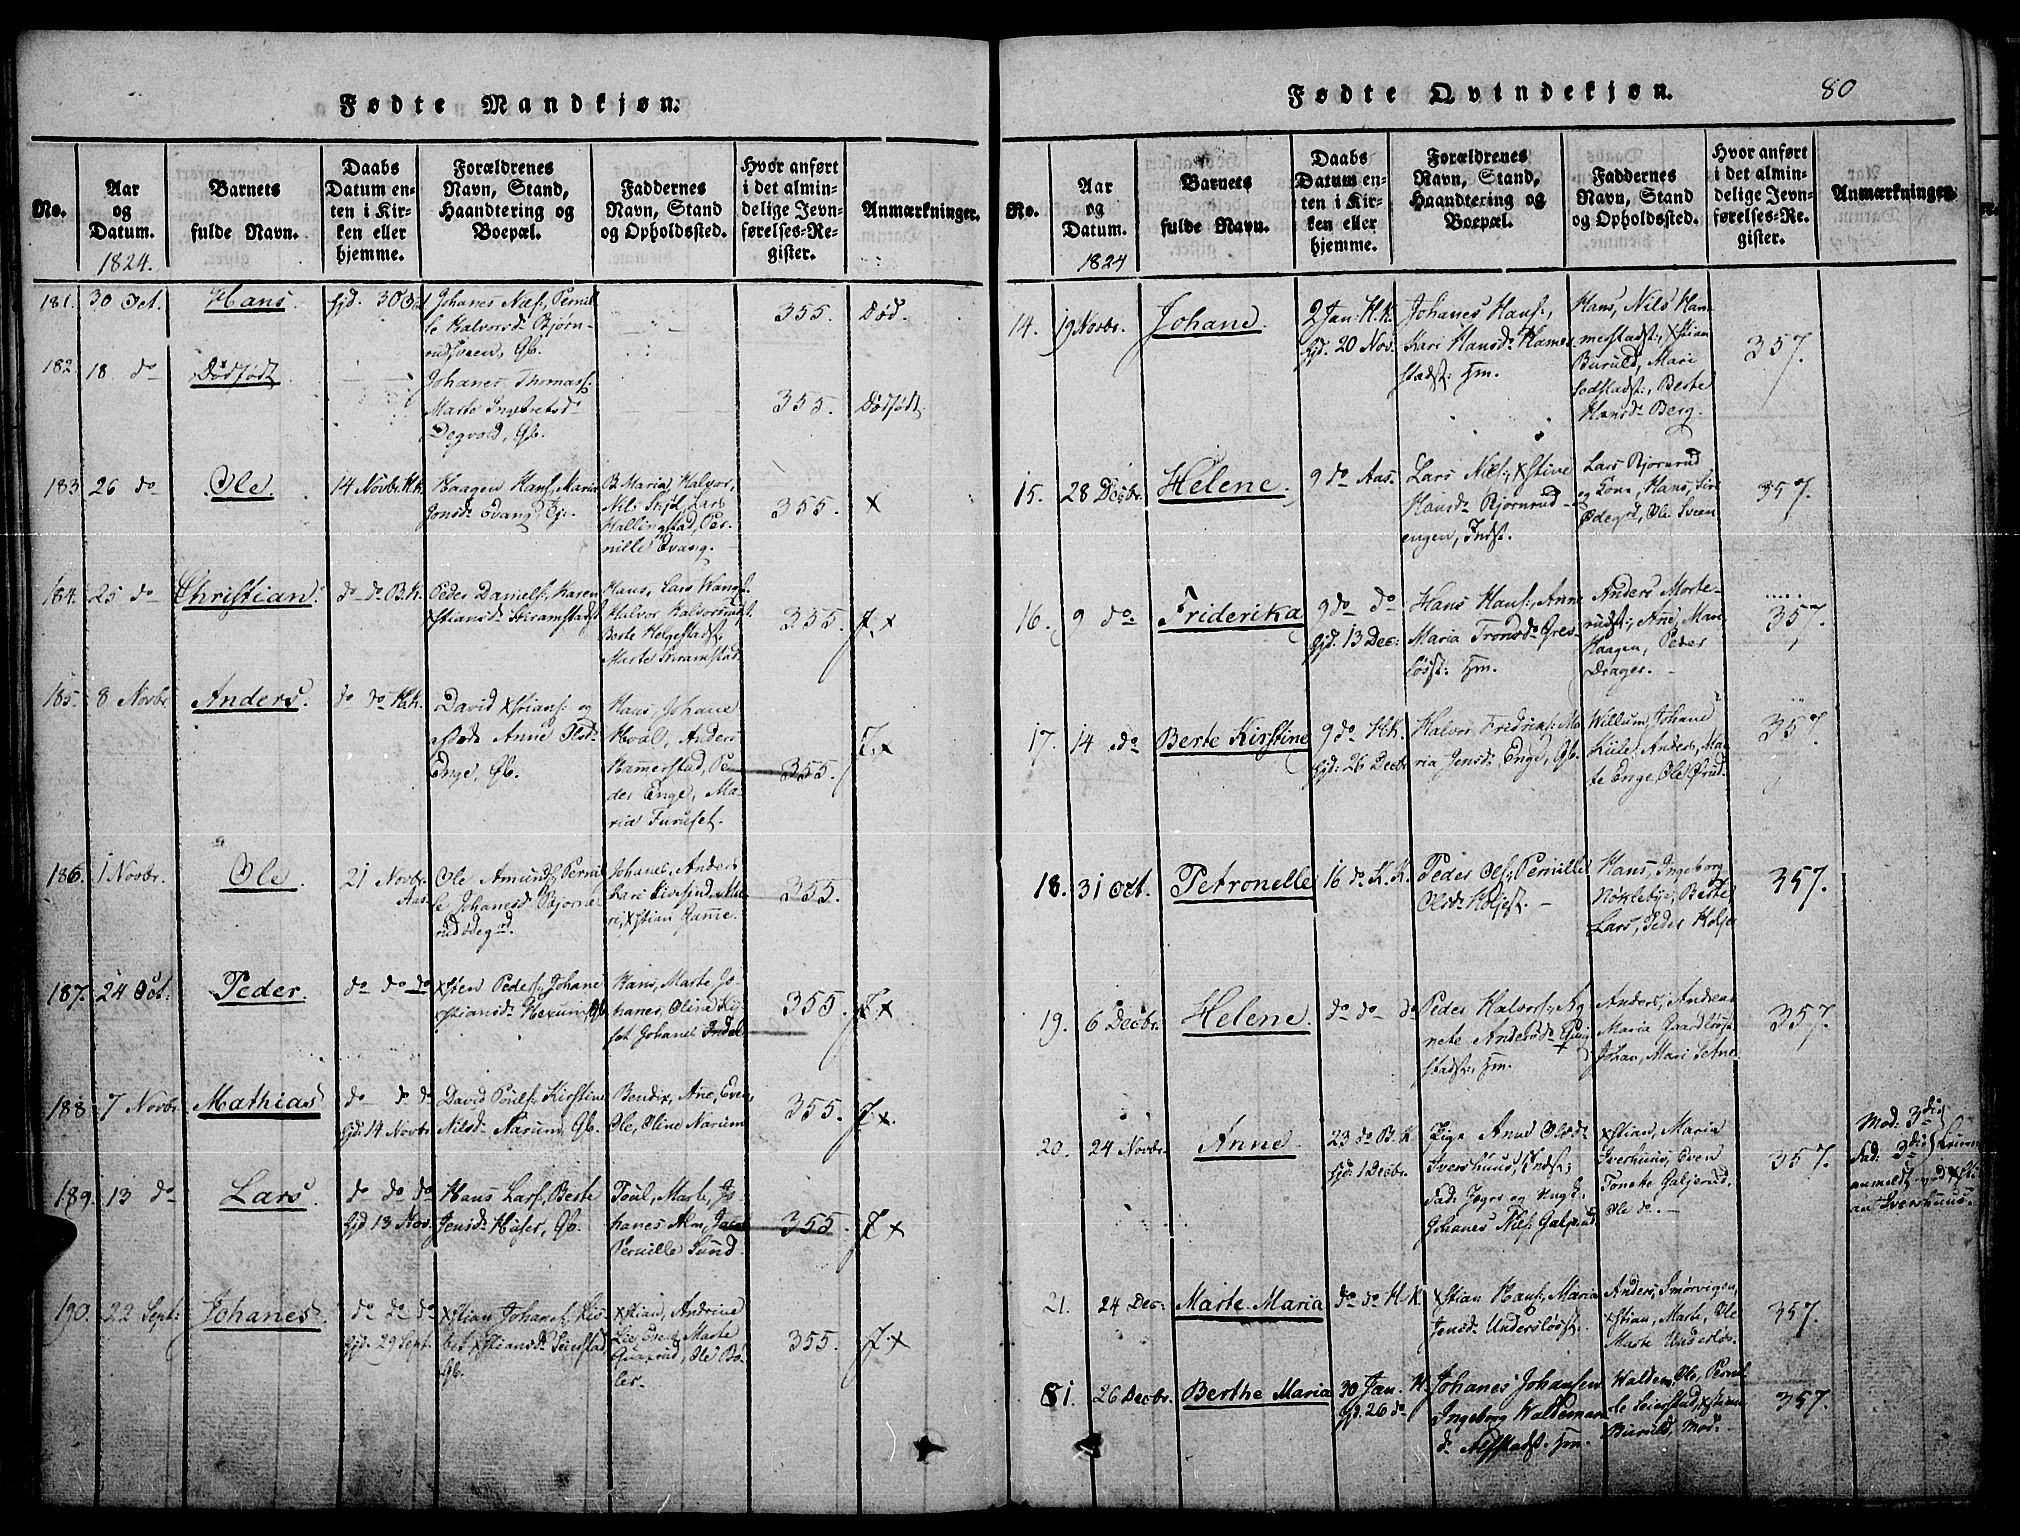 Fødte Mandkjøn.
No.
Aar
og
Datum.
1824.
Barnets
fulde Navn.
Daabs
Datum en-
ten i Kir-
ken eller
hjemme.
Forældrenes
Navn, Stand,
Haandtering og
Boepæl.
Faddernes
Navn, Stand
og Opholdssted.
Hvor anført
i det almin-
delige Jevn-
førelses-Re-
gister.
Anmærkninger.
181. 30 Oct. Hans. hjd. 30 Oct
Johanes Nils: Pernil-
le Halvorsd: Bjørn-
rudsveen, Gb.
355. Død.
182. 18 do Dødfødt
Johanes Thomass:
Marte Ingebretsd:
Degvold, Gb.
355. Dødfødt.
183. 26 do Ole. 14 Novbr. H.K.
Haagen Hans: Maria
Jonsd: Evang, Ej.
B. Maria, Halvor,
Nils Skjøl, Lars
Hallingstad, Per-
nille Evang.
355. x
184. 25 do Christian. do do B.K.
Peder Daniels: Karen
Xstiansd: Skramstadst
Hans, Lars Wangs:
Halvor Halvorsrudst.
Berte Helgestadst.
Marte Skramstad.
355. F. x
185. 8 Novbr Anders. do do H.K.
David Xstians: og
Anne Olsd:
Enge, Gb.
Hans, Johane
Hval, Anders
Hamerstad, Pe-
der Enge, Ma-
ria Furuset.
355. F. x
186. 1 Novbr. Ole. 21 Novbr.
Aas.
Ole Amunds: Pernil-
le Johanesd: Bjørne-
rudødegrd.
Johanes, Anders
ri, Xstian Ramme.
355.
187. 24 Oct. Peder. do do do
Xsten Peders: Johane
Xstiansd: Hexum, Gb
Hans, Marte Jo-
hanes, Oline
set Johanes Indal
355. F. x
188. 7 Novbr. Mathias do do do
hjd. 14 Novbr.
David Pouls: Kirstine
Nilsd: Narum, Gb.
Bendix, Ane, Even,
Ole, Oline Narum
355. F. x.
189. 13 do Lars. do do do
hjd 13 Nov.
Hans Lars: Berte
Jensd: Huser, Gb.
Poul, Marte, Jo-
hanes Alm, Jacob
Pernille Sund.
355. F. x
190. 22 Sept: Johanes. do do do
hjd. 29 Sept.
Xstian Johanes: Lis-
bet Xstiansd: Seierstad,
Gb.
Xstian, Andrine
Lie, Even, Marte
Quaxrud, Ole Bø-
ler.
355. F. x
Fødte Qvindekjøn. 80
No.
Aar
og
Datum.
1824
Barnets
fulde Navn.
Daabs
Datum en-
ten i Kir-
ken eller
hjemme.
Forældrenes
Navn, Stand,
Haandtering og
Boepæl.
Faddernes
Navn, Stand
og Opholdssted.
Hvor anført
i det almin-
delige Jevn-
førelses-Re-
gister.
Anmærkninger.
14. 19 Novbr. Johane. 2 Jan: H.K.
hjd. 20 Nov.
Johanes Hans:,
Kari Hansd: Hamer-
stadst: Hm.
Hans, Nils Ham-
merstadst:, Xstian
Buruld, Mari
Sodstadst:, Berte
Hansd: Berg.
357.
15. 28 Decbr. Helene. 9 do Aas.
Lars Nils:, Xstine
Hansd: Bjørnrud-
engen, Indst.
Lars Bjørnrud
og Kone, Hans, Siri
Ødegrd, Ole Sveen
357.
16. 9 do Friderika 9 do do
hjd. 13 Dec:
Hans Hans:, Anne
Maria Tronsd: Gres-
løsst: Hm.
Anders Morte-
rudst:, Ane, Mari,
Haagen, Peder
Drager.
357.
17. 14 do Berte Kirstine 9 do H.K.
hjd: 26 Decbr
Halvor Fridrics: Ma-
ria Jensd: Enge, Gb.
Willum, Johane
Kiile, Anders, Mar-
te Enge, Ole Ørud.
357.
18. 31 Oct. Petronelle 16 do K.K.
Peder Ols: Pernille
Olsd: Koljest.
Hans, Ingeborg
Nøklebye, Berte
Lars, Peder Kolje
357.
19. 6 Decbr. Helene. do do do
Peder Halvors:, Ag-
nete Andersd:
stadst:, Hm.
Anders, Andreas
Maria Gaardløsst.
Johan, Mari Setne
357.
20. 24 Novbr. Anne. 23 do B.K
hjd. 1 Decbr.
Pige Anne Olsd:
Ivershuus, Indst;
Fad: Jeger og Ungk.
Johanes Nils: Galjerud
Xstian, Maria
Iverhuus, Even
Tonete Galjerud,
Ole do. -
357.
Mod: 3die
Fad. 3die Leierm
anmeldt ved Xsti-
an Ivershuus.
21. 24 Dec: Marte Maria do do H.K.
Xstian Hans:, Maria
Jensd: Undersløsst.
Anders Smørvigen,
Xstian, Marte, Ole
Marte Undersløs.
357.
81. 26 Decbr. Berthe Maria 30 Jan. H.
hjd. 26 do
Johanes Johansen
Ingeborg Waldemars
d: Alfstadst. Hm.
Waldem, Ole, Pernil-
le Seierstad, Xstian
Buruld, Mod:
357.